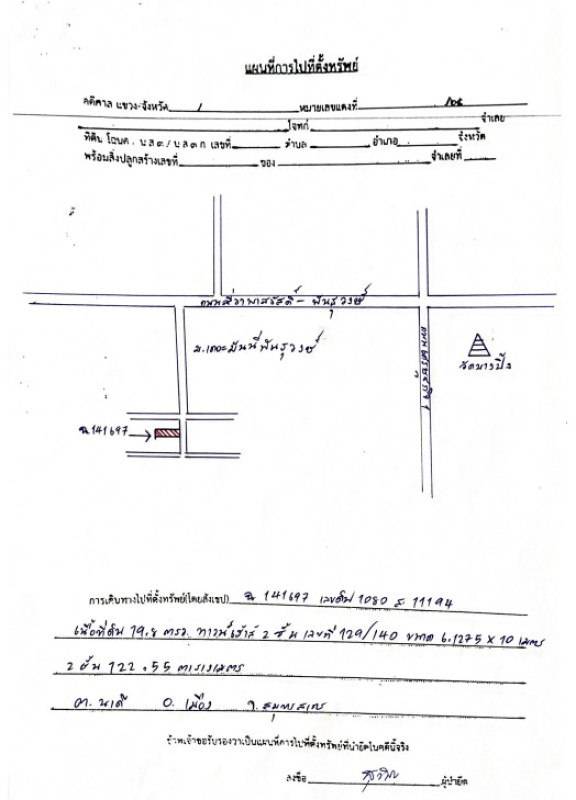 แผนที่การไปที่ตั้งทรัพย์
คดีศาล แขวง/จังหวัด / หมายเลขแดงที่ /๐๕
โจทก์ จำเลย
ที่ดิน โฉนด. น.ส ๓ / น.ส ๓ ก เลขที่ ตำบล อำเภอ จังหวัด
พร้อมสิ่งปลูกสร้างเลขที่ ของ จำเลยที่
ถนน - พันธุวงษ์
ม.เดอะมันนี่พันธุวงษ์
วัดบางปิ้ง
ฉ.141697
การเดินทางไปที่ตั้งทรัพย์(โดยสังเขป) ฉ 141697 เลขดิน 1080 ส. 11194
เนื้อที่ดิน 19.8 ตรว. ทาวน์เฮ้าส์ 2 ชั้น เลขที่ 129/140 ขนาด 6.1275 X 10 เมตร
2 ชั้น 122.55 ตารางเมตร
ต. นาดี อ. เมือง จ. สมุทรสาคร
ข้าพเจ้าขอรับรองว่าเป็นแผนที่การไปที่ตั้งทรัพย์ที่นำยึดในคดีนี้จริง
ลงชื่อ ผู้นำยึด